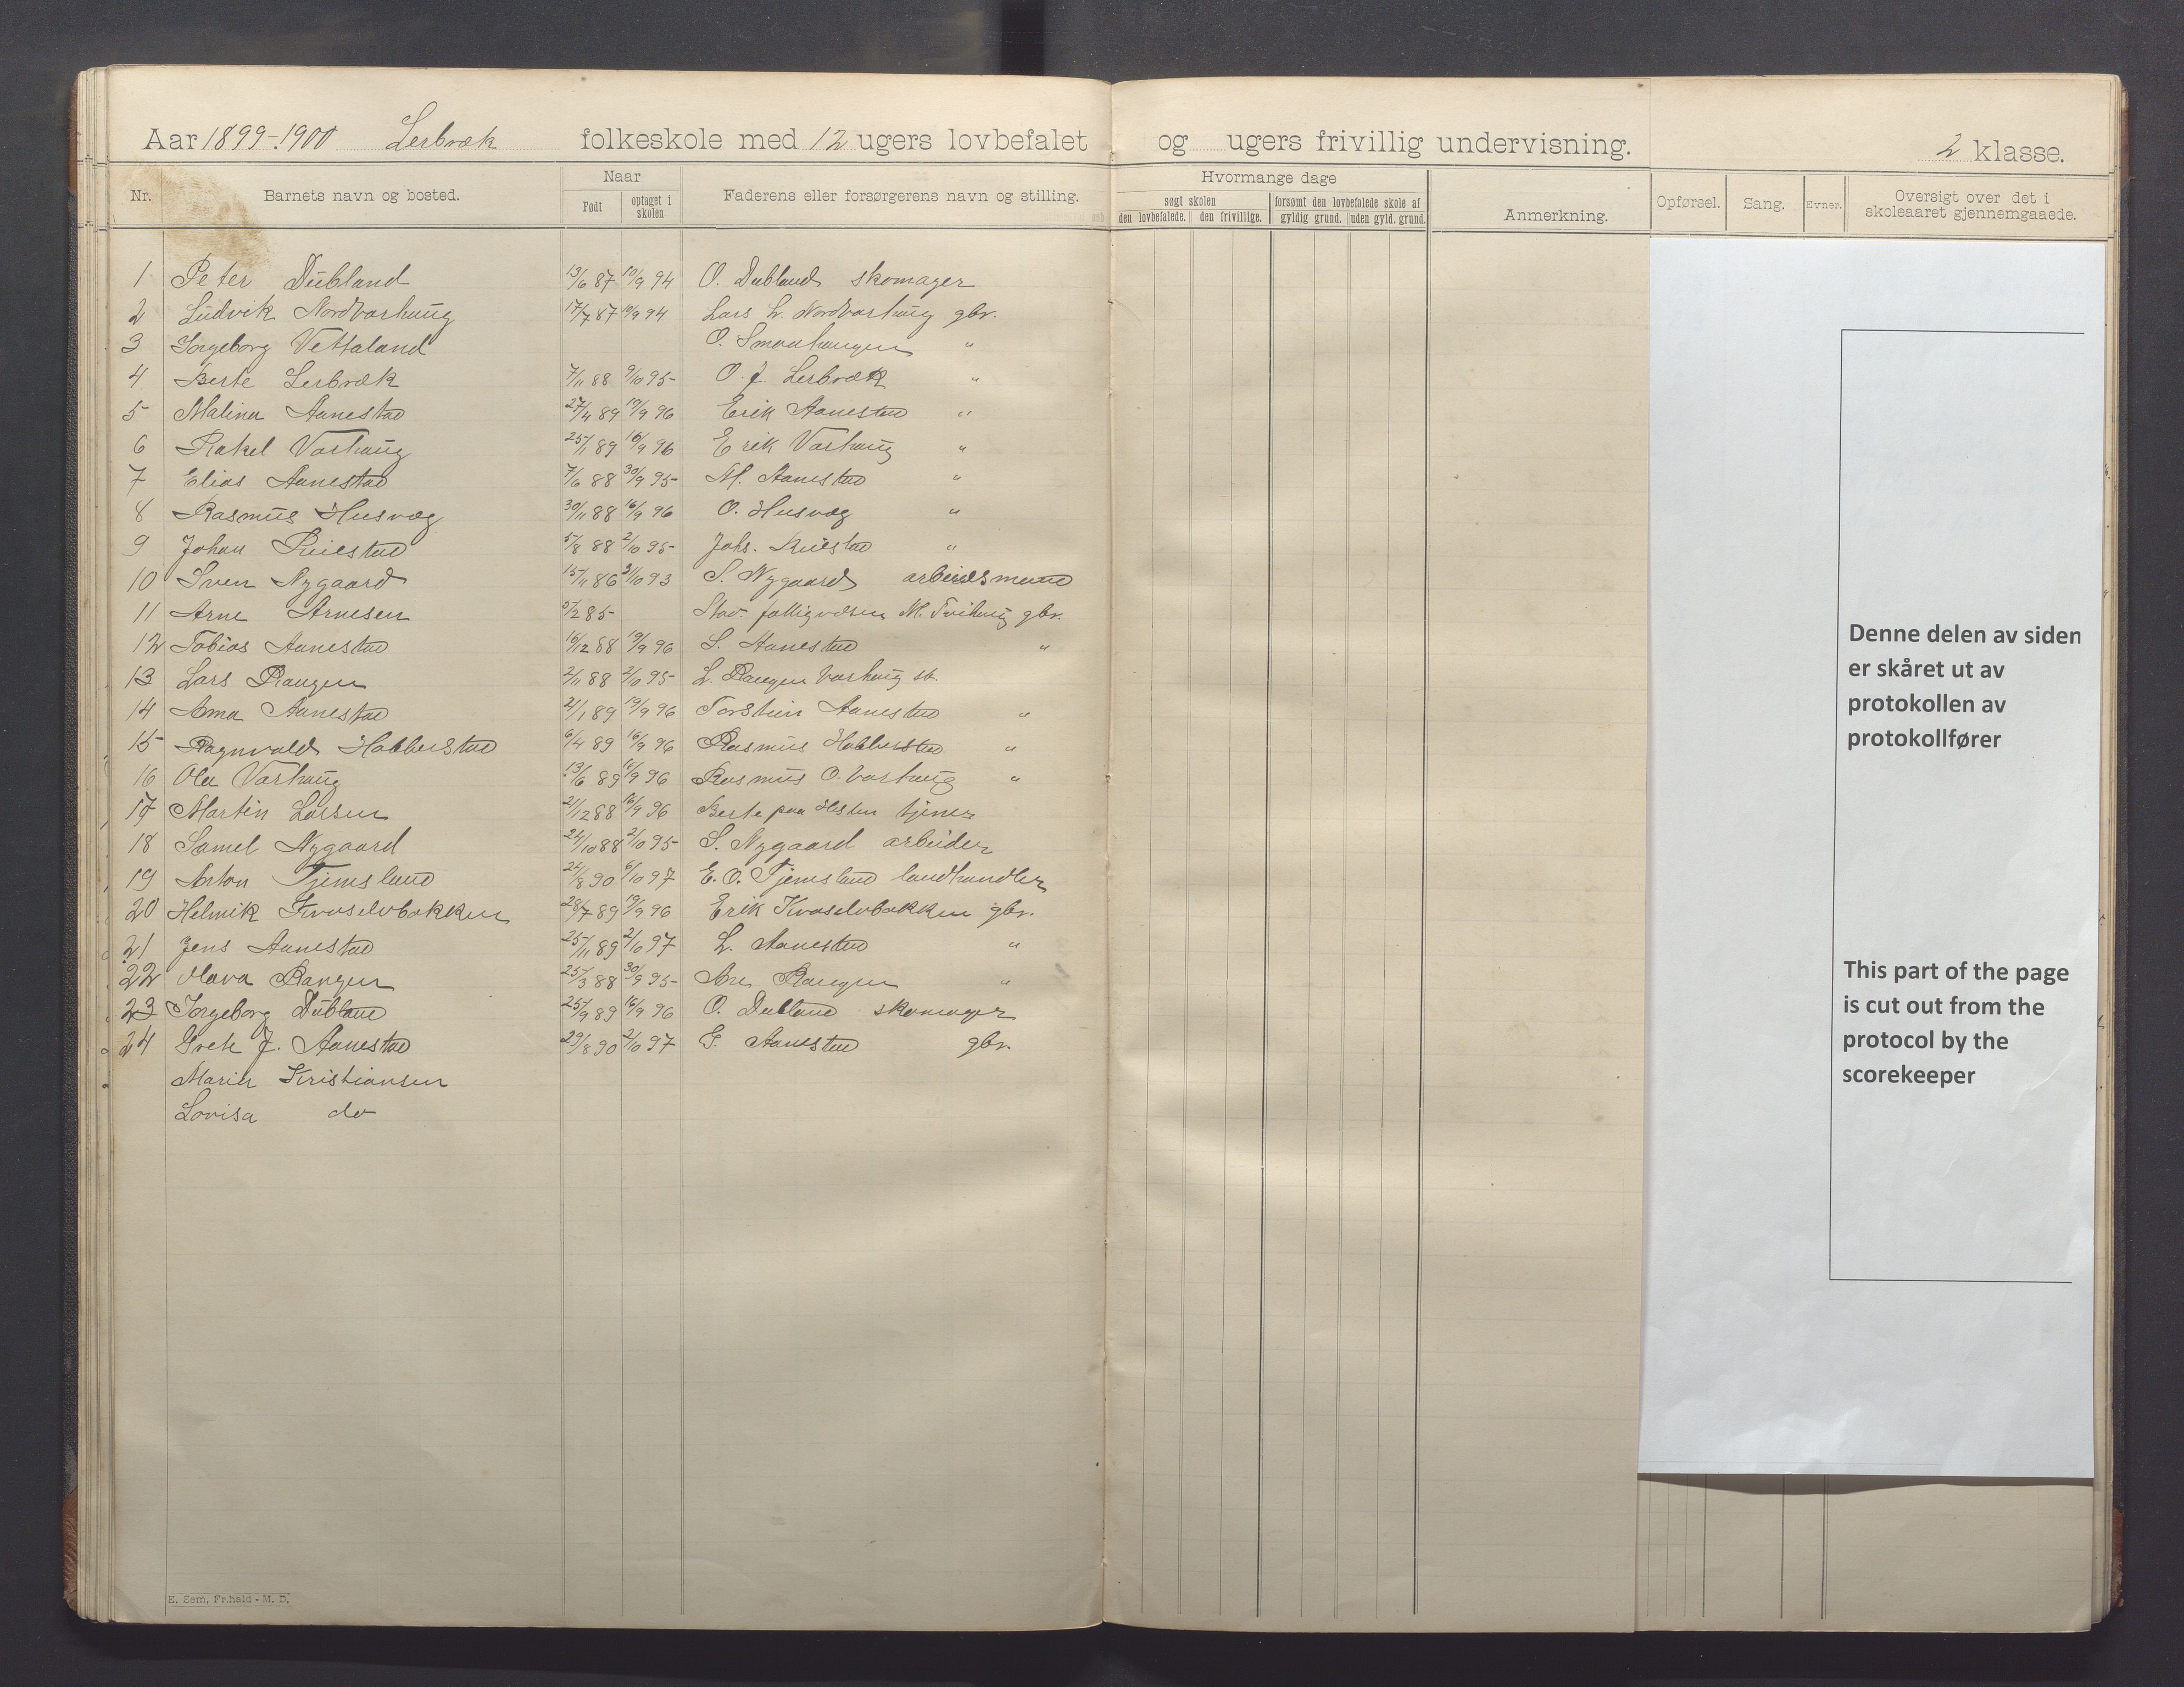 Aar 1899-1900 Lerbræk folkeskole med 12 ugers lovbefalet og ugers frivillig undervisning. 2 klasse.
Nr. Barnets navn og bosted. Naar Født optaget i skolen Faderens eller forsørgerens navn og stilling.
Hvormange dage
søgt skolen den lovbefalede. den frivillige. forsømt den lovbefalede skole af gyldig grund. uden gyld. grund.
Anmerkning. Opførsel. Sang. Evner. Oversigt over det i skoleaaret gjennemgaaede.
1 Peter Dubland 13/6 87 10/9 94 O. Dubland skomager
2 Ludvik Nordvarhaug 17/7 87 10/9 94 Lars L. Nordvarhaug gbr.
3 Ingeborg Vettaland O. Smaahaugen "
4 Berte Lerbræk 7/11 88 9/10 95 O. J. Lerbræk "
5 Malina Aanestad 27/4 89 19/9 96 Erik Aanestad "
6 Rakel Varhaug 25/1 89 16/9 96 Erik Varhaug "
7 Elias Aanestad 7/6 88 30/9 95 M. Aanestad "
8 Rasmus Husvæg 30/11 88 16/9 96 O. Husvæg "
9 Johan Reiestad 5/8 88 2/10 95 Johs. Reiestad "
10 Sven Nygaard 15/11 86 3/10 93 S. Nygaard arbeidsmand
11 Arne Arnesen 5/2 85 Stav. fattigvæsen M. gbr.
12 Tobias Aanestad 16/12 88 19/9 96 S. Aanestad "
13 Lars Raugen 2/11 88 2/10 95 L. Raugen Varhaug st.
14 Anna Aanestad 21/1 89 19/9 96 Torstein Aanestad "
15 Ragnvald Habberstad 6/4 89 16/9 96 Rasmus Habberstad "
16 Ola Varhaug 13/6 89 16/9 96 Rasmus O. Varhaug "
17 Martin Larsen 21/12 88 16/9 96 Berte paa tjener
18 Samel Nygaard 24/10 88 2/10 95 S. Nygaard arbeider
19 Anton Tjemsland 24/8 90 6/10 97 E. O. Tjemsland landhandler
20 Helmik Kvaselvbakken 28/7 89 19/9 96 Erik Kvaselvbakken gbr.
21 Jens Aanestad 25/11 89 2/10 97 L. Aanestad "
22 Olava Rangen 25/3 88 30/9 95 Are Rangen "
23 Ingeborg Dubland 25/9 89 16/9 96 O. Dubland skomager
24 J. Aanestad 29/8 90 2/10 97 G. Aanestad gbr.
Marie Kristiansen
Lovisa do
Denne delen av siden
er skåret ut av
protokollen av
protokollfører
This part of the page
is cut out from the
protocol by the
scorekeeper
E. Sem, Fr.hald - M. D.